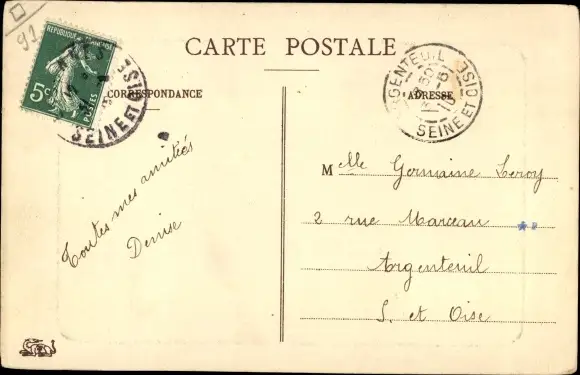 91
RÉPUBLIQUE FRANÇAISE
5c
POSTES
SEINE ET OISE
CARTE POSTALE
ARGENTEUIL
SEINE ET OISE
CORRESPONDANCE
ADRESSE
Toutes mes amitiés
Denise
Melle Germaine Leroy
2 rue Marceau
Argenteuil
S. et Oise